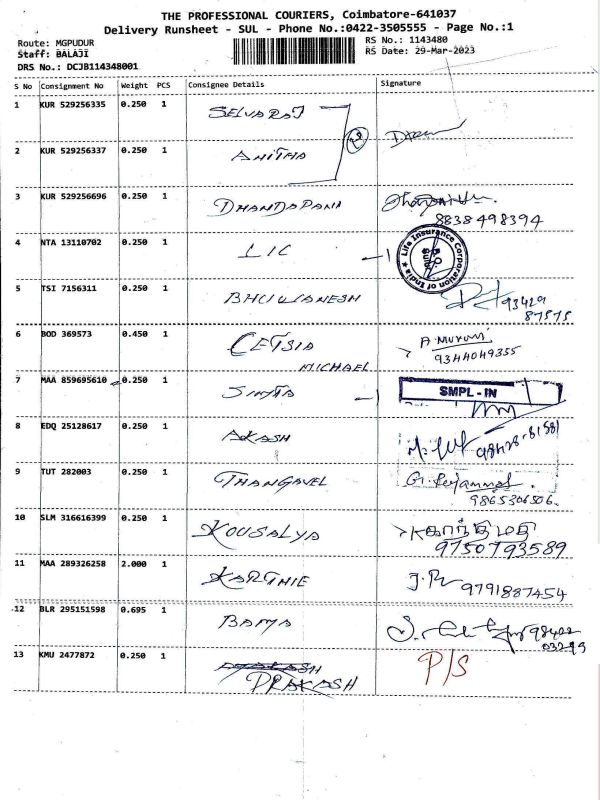 THE PROFESSIONAL COURIERS, Coimbatore-641037
Delivery Runsheet - SUL - Phone No.:0422-3505555 - Page No.:1
Route: MGPUDUR
RS No.: 1143480
Staff: BALAJI
RS Date: 29-Mar-2023
DRS No.: DCJB114348001
S No Consignment No Weight PCS Consignee Details Signature
1 KUR 529256335 0.250 1 SELVARAJ
2 KUR 529256337 0.250 1 ANITHA
3 KUR 529256696 0.250 1 DHANDAPANI
8838498394
4 NTA 13110702 0.250 1 LIC
Life Insurance Corporation of India
5 TSI 7156311 0.250 1 BHUVANESH 93429
87575
6 BOD 369573 0.450 1 CETSIA A MURUGI
MICHAEL 9344049355
7 MAA 859695610 0.250 1 SMPL - IN
8 EDQ 25128617 0.250 1 AKASH
9 TUT 282003 0.250 1 THANGAVEL G. Rejammal
9865306506.
10 SLM 316616399 0.250 1 KOUSALYA
9750793589
11 MAA 289326258 2.000 1 KARTHIE 9791887454
12 BLR 295151598 0.695 1 BAMA 98402
03299
13 KMU 2477872 0.250 1 P/S
PRAKASH